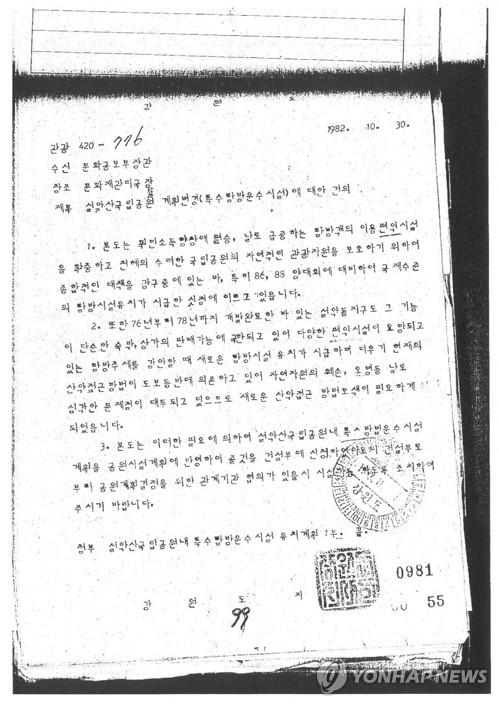 강 원 도
관광 420-776
1982. 10. 30.
수신 문화공보부장관
참조 문화재관리국장
제목 설악산국립공원 계획변경(특수탐방운수시설)에 대한 건의
1. 본도는 국민소득향상에 편승, 날로 급증하는 탐방객의 이용편의시설
을 확충하고 천혜의 수려한 국립공원의 자연적인 관광자원을 보호하기 위하여
종합적인 대책을 강구중에 있는 바, 특히 86, 88 양대회에 대비하여 국제수준
의 탐방시설유치가 시급한 실정에 이르고 있읍니다.
2. 또한 76년부터 78년까지 개발완료한 바 있는 설악동지구도 그 기능
이 단순한 숙박, 상가의 판매기능에 국한되고 있어 다양한 편의시설이 요망되고
있는 탐방추세를 감안할 때 새로운 탐방시설 유치가 시급하며 더우기 현재의
산악접근방법이 도보등반에 의존하고 있어 자연자원의 훼손, 오염등 날로
심각한 문제점이 대두되고 있으므로 새로운 산악접근 방법모색이 필요하게
되었읍니다.
3. 본도는 이러한 필요에 의하여 설악산국립공원내 특수탐방운수시설
계획을 공원시설계획에 반영하여 줄것을 건설부에 신청하였 건설부로
부터 공원계획결정을 위한 관계기관 협의가 있을시 시설 조치하여
주시기 바랍니다.
첨부 설악산국립공원내 특수탐방운수시설 유치계획 1부. 끝.
강 원 도 지
0981
55
99
YONHAPNEWS